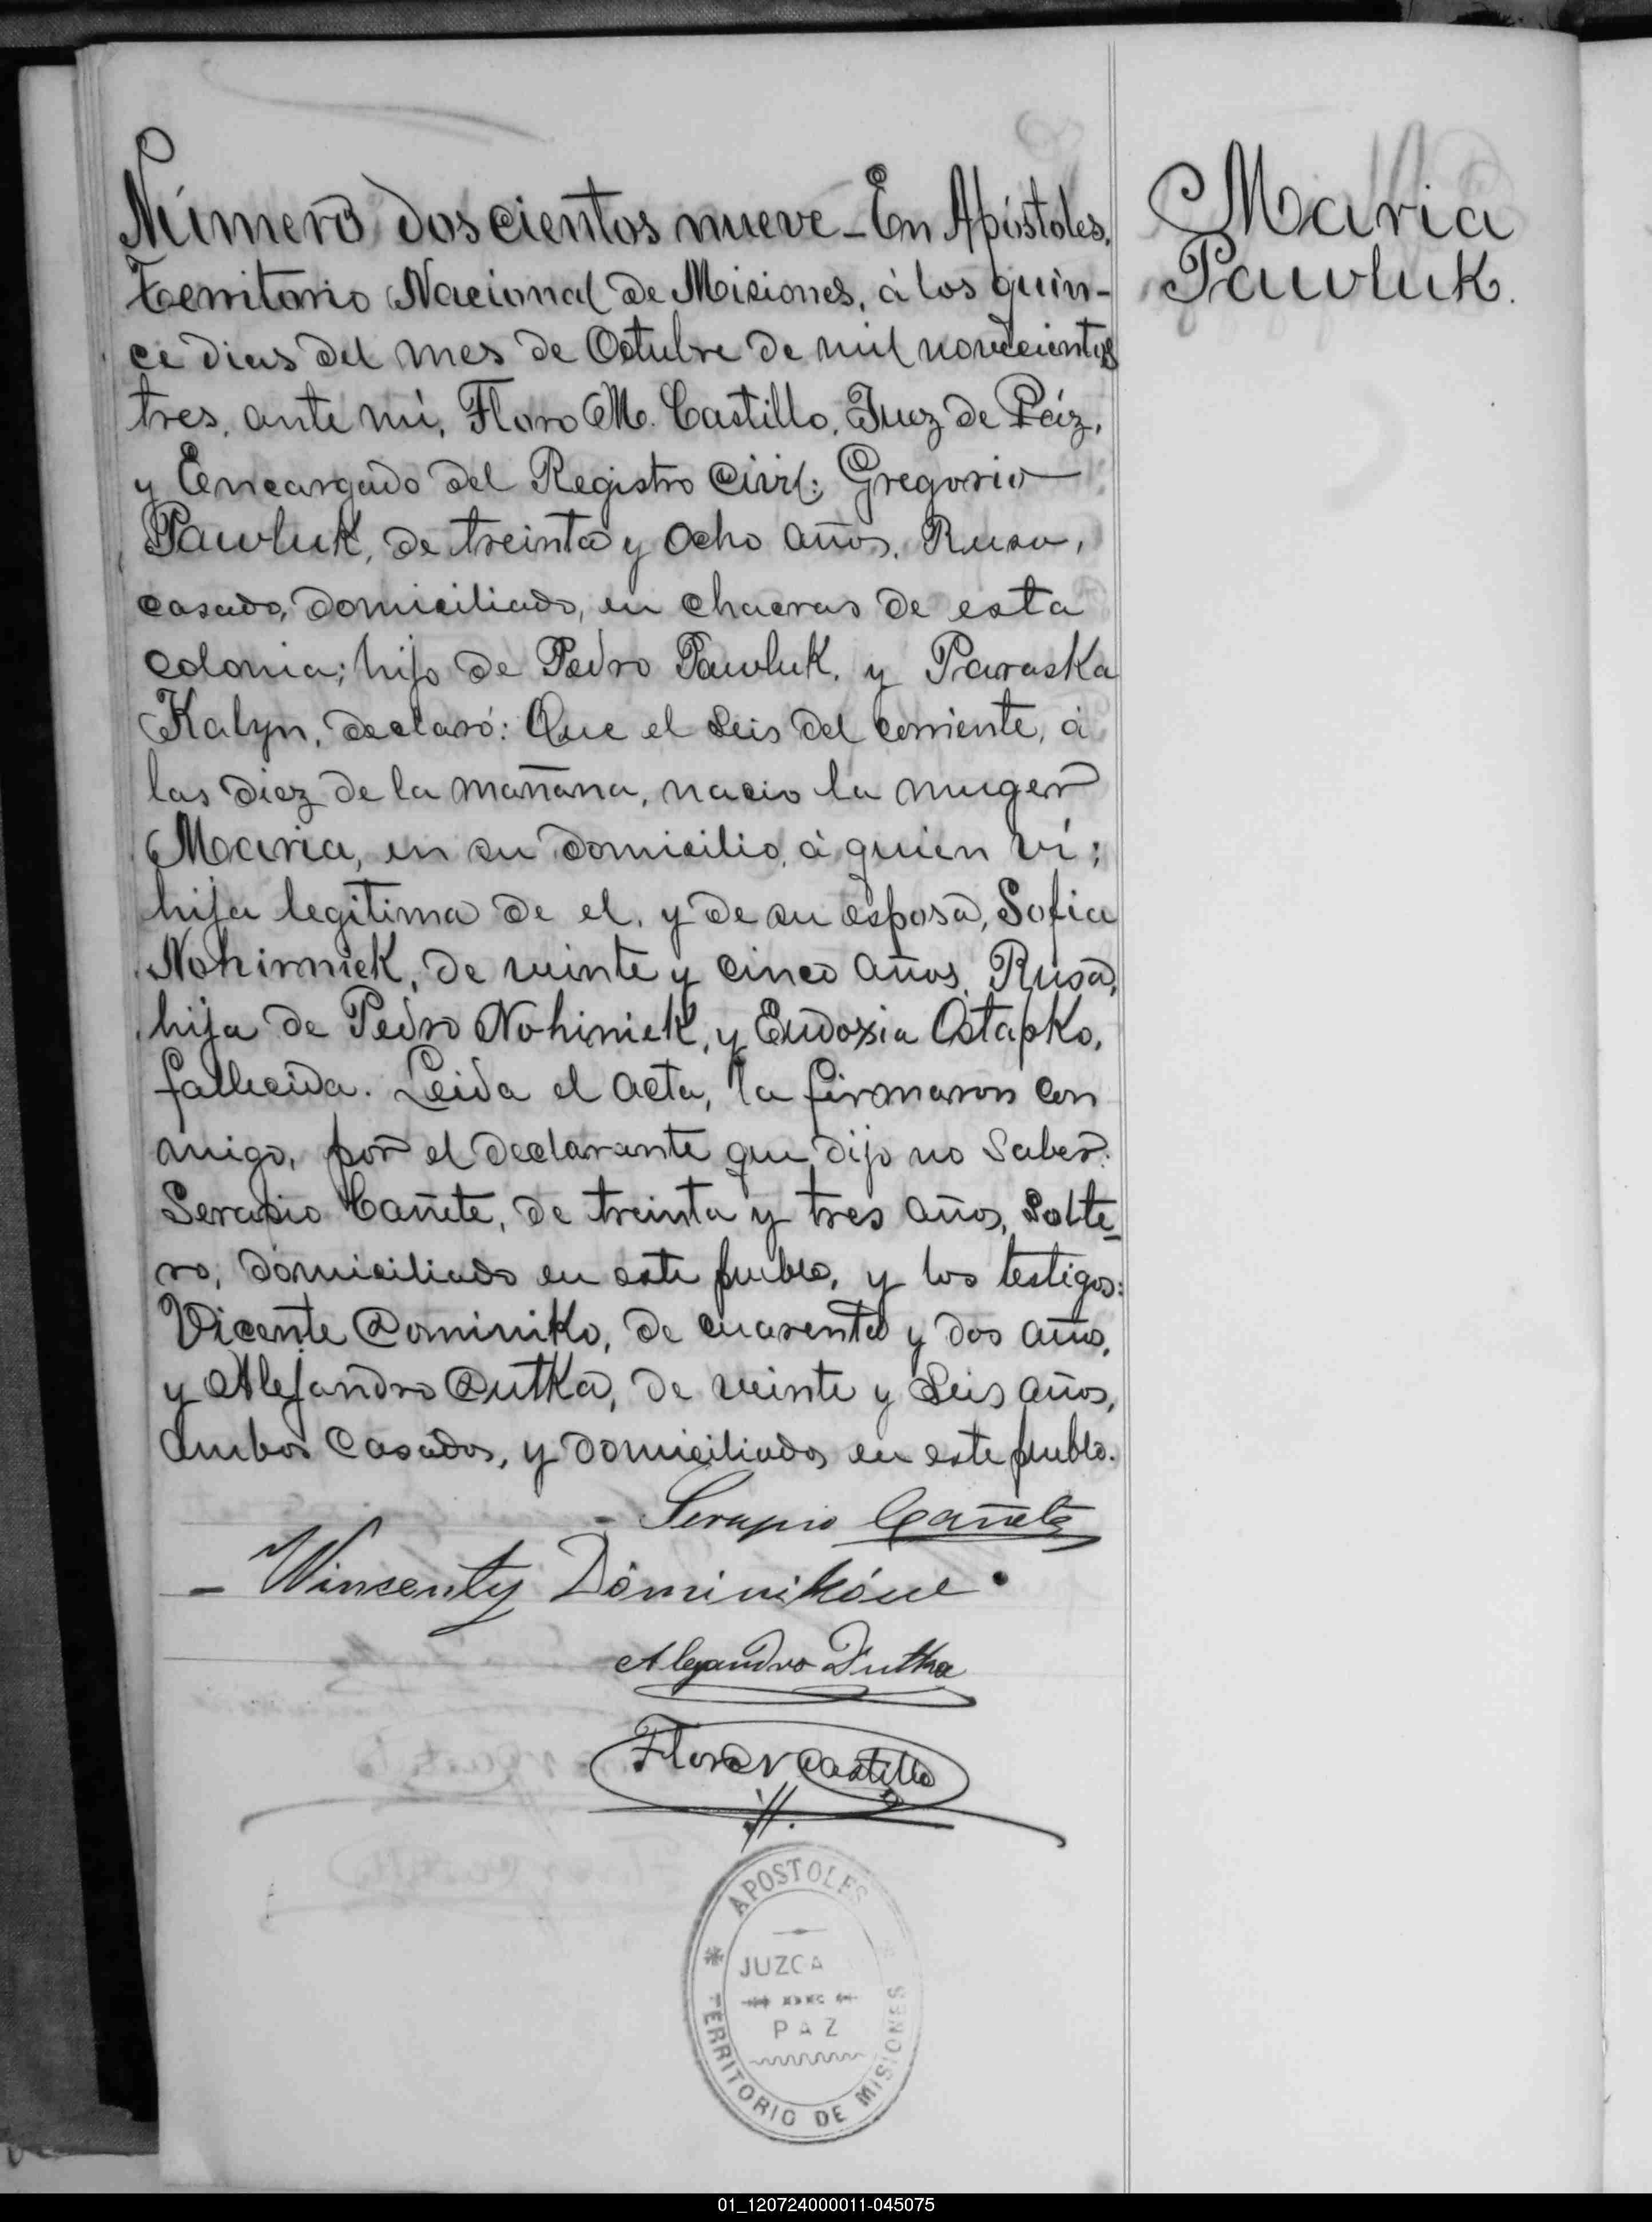 Número doscientos nueve - En Apóstoles,
Territorio Nacional de Misiones, á los quin-
ce dias del mes de Octubre de mil novecientos
tres, ante mí, Floro M. Castillo, Juez de Páz,
y Encargado del Registro Civil: Gregorio
Pawluk, de treinta y ocho años, Ruso,
casado, domiciliado, en chacras de esta
colonia; hijo de Pedro Pawluk, y Paraska
Kalyn, declaró: Que el seis del corriente, á
las diez de la mañana, nacio la muger
Maria, en su domicilio, á quien ví;
hija legitima de el, y de su esposa, Sofia
Nohirniek, de veinte y cinco años, Rusa,
hija de Pedro Nohiniek, y Eudoxia Ostapko,
fallecida. Leida el acta, la firmaron con
migo, por el declarante que dijo no saber:
Serapio Cañete, de treinta y tres años, Solte-
ro, domiciliado en este pueblo, y los testigos:
Vicente Dominiko, de cuarenta y dos años,
y Alejandro Dutka, de veinte y seis años,
ambos casados, y domiciliados en este pueblo.
- Serapio Cañete
- Winsenty Dominików.
Alejandro Dutka
Floro M Castillo
APOSTOLES
JUZGA
PAZ
TERRITORIO DE MISIONES
Maria
Pawluk.
01_120724000011-045075